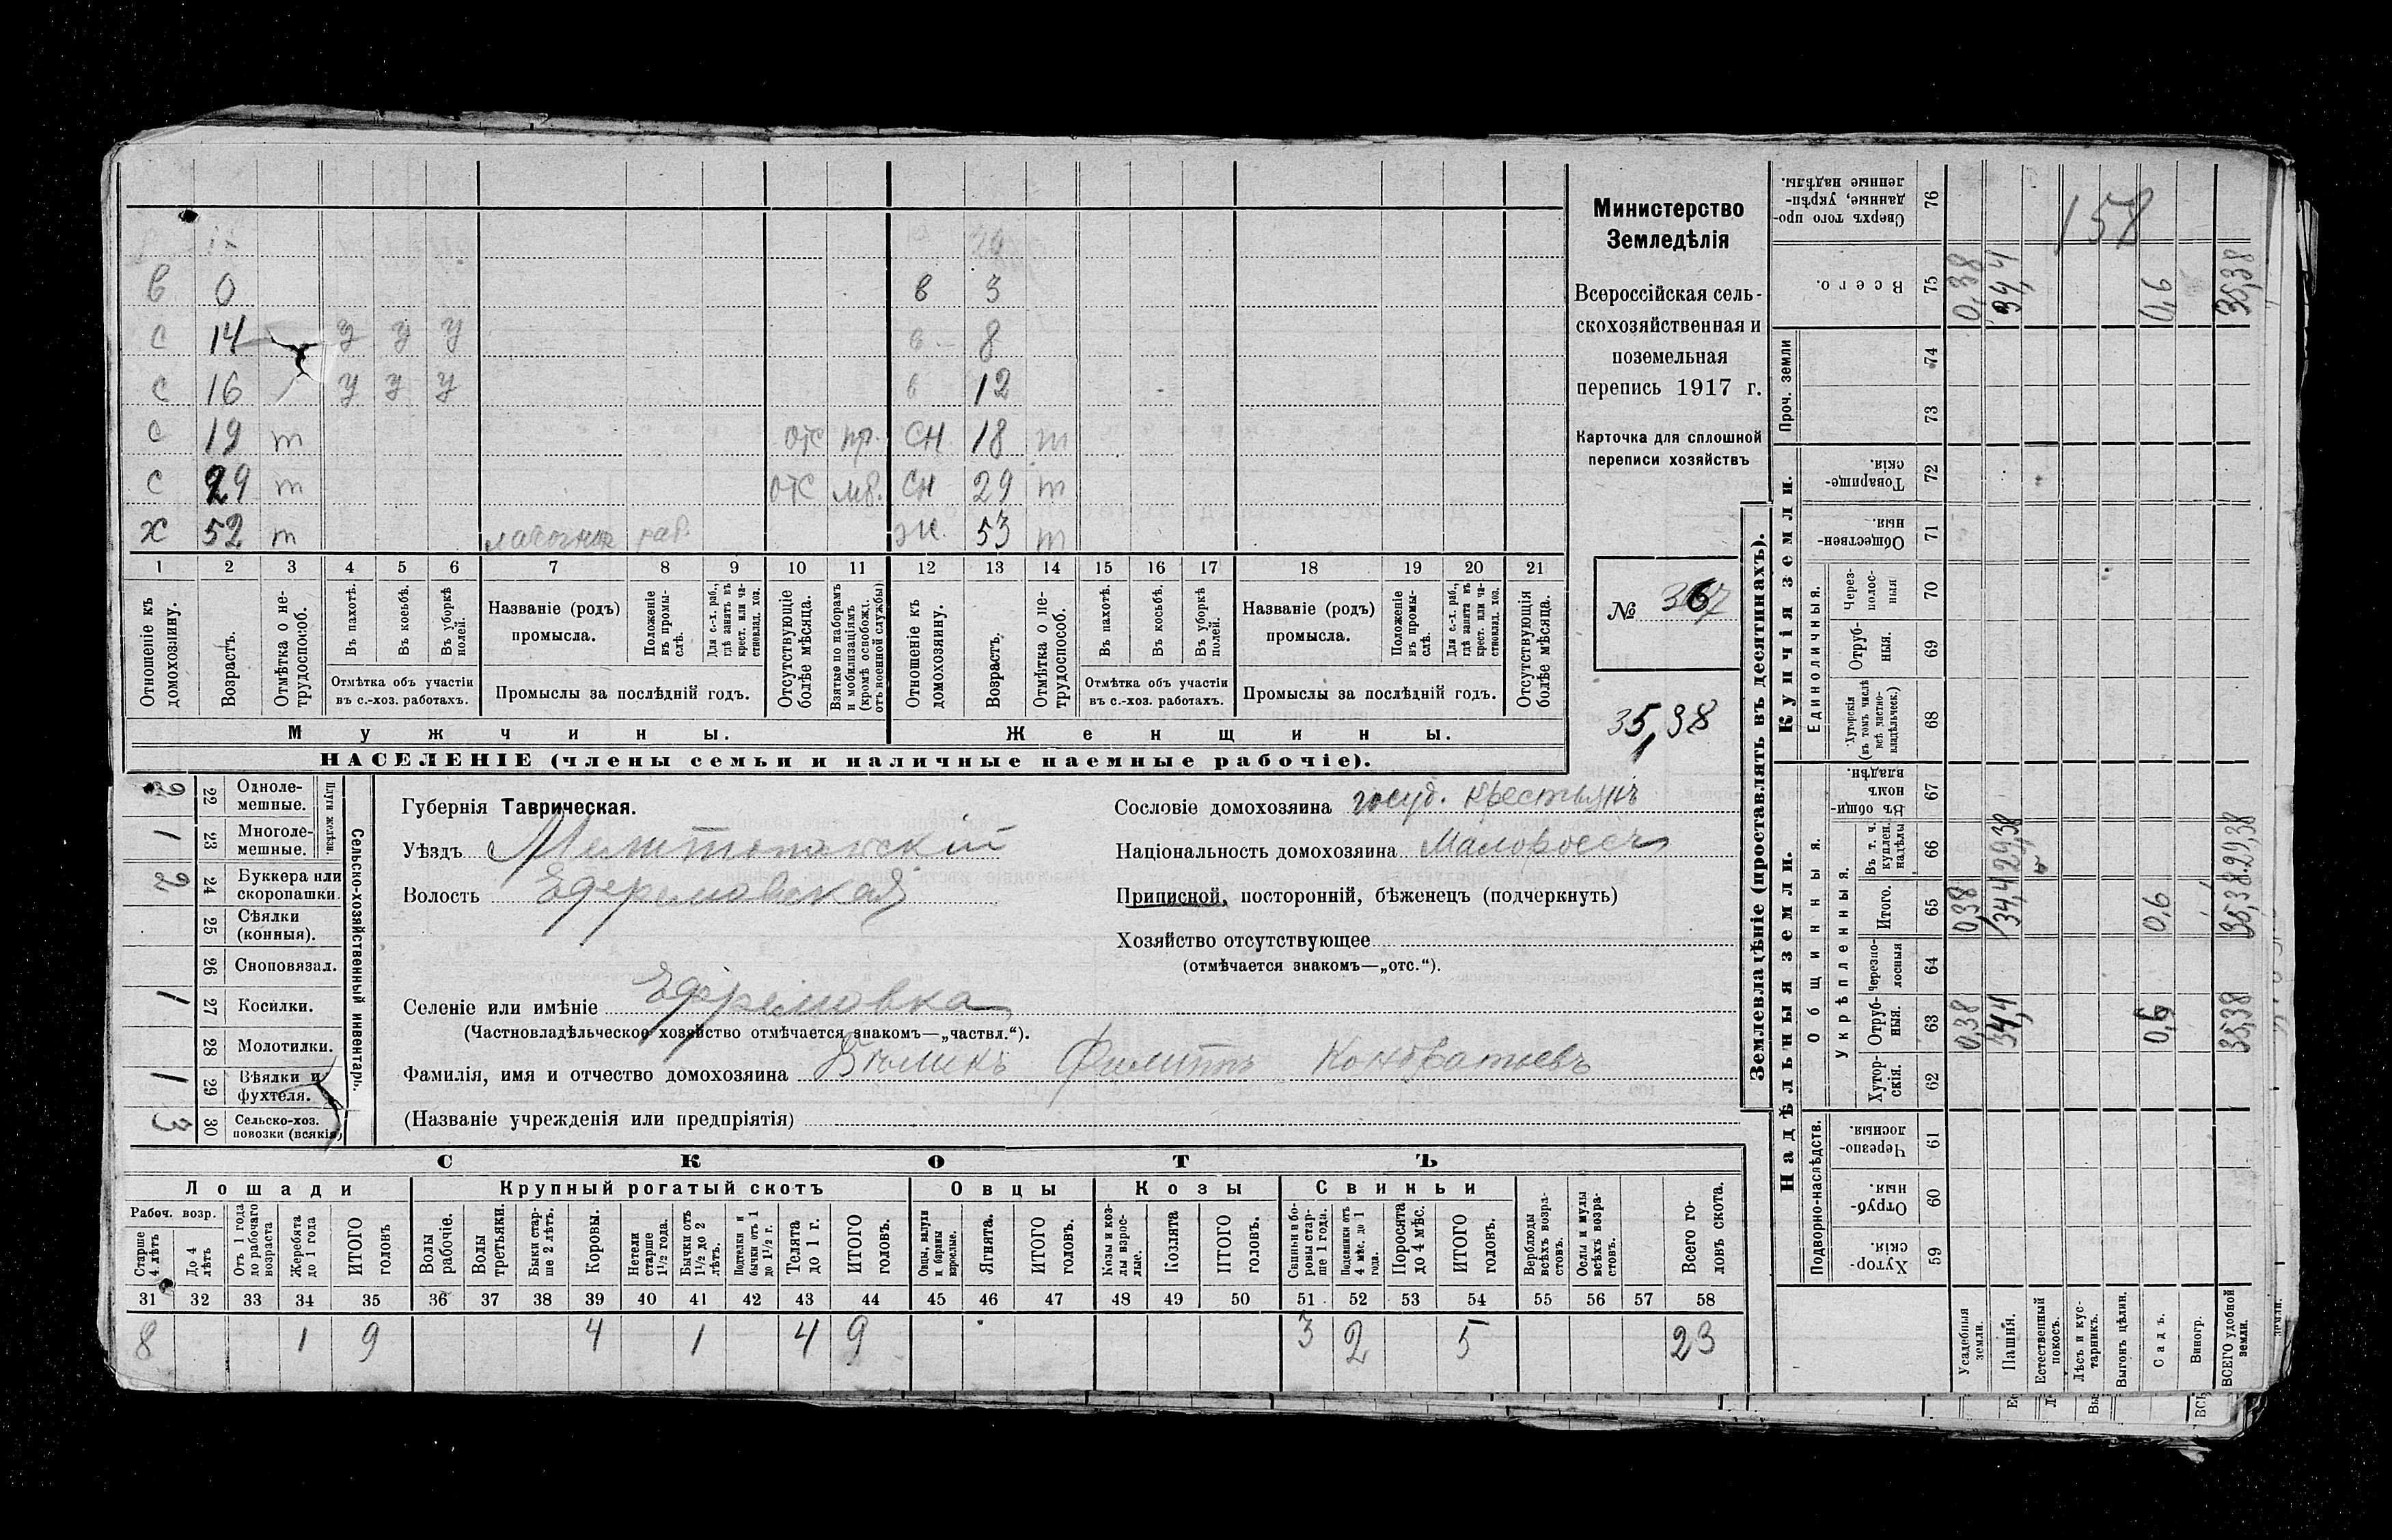 в 0 в 3
с 14 у у у в 8
с 16 у у у в 12
с 19 т отс пр. сн 18 т
с 29 т отс мб. сн 29 т
х 52 т раб. ж 53 т
1 2 3 4 5 6 7 8 9 10 11 12 13 14 15 16 17 18 19 20 21
Отношеніе къ домохозяину.
Возрастъ.
Отмѣтка о не-
трудоспособ.
Въ пахотѣ.
Въ косьбѣ.
Въ уборкѣ
полей.
Отмѣтка объ участіи
въ с.-хоз. работахъ.
Названіе (родъ)
промысла.
Положеніе
въ промы-
слѣ.
Для с.-х. раб.,
гдѣ занятъ въ
крест. или ча-
стновлад. хоз.
Промыслы за послѣдній годъ.
Отсутствующіе
болѣе мѣсяца.
Взятые по наборамъ
и мобилизаціямъ
(кромѣ освобожд.
отъ военной службы)
Отношеніе къ
домохозяину.
Возрастъ.
Отмѣтка о не-
трудоспособ.
Въ пахотѣ.
Въ косьбѣ.
Въ уборкѣ
полей.
Отмѣтка объ участіи
въ с.-хоз. работахъ.
Названіе (родъ)
промысла.
Положеніе
въ промы-
слѣ.
Для с.-х. раб.,
гдѣ занята въ
крест. или ча-
стновлад. хоз.
Промыслы за послѣдній годъ.
Отсутствующія
болѣе мѣсяца.
Мужчины.
Женщины.
НАСЕЛЕНІЕ (члены семьи и наличные наемные рабочіе).
Министерство
Земледѣлія
Всероссійская сель-
скохозяйственная и
поземельная
перепись 1917 г.
Карточка для сплошной
переписи хозяйствъ
№ 367
35,38
Сельско-хозяйственный инвентарь.
Плуги желѣзн.
2 22 Однолe-
мешные.
1 23 Многоле-
мешные.
2 24 Буккера или
скоропашки.
25 Сѣялки
(конныя).
26 Сноповязал.
1 27 Косилки.
28 Молотилки.
1 29 Вѣялки и
фухтеля.
3 30 Сельско-хоз.
повозки (всякія)
Губернія Таврическая.
Уѣздъ Мелитопольскій
Волость Ефремовская
Селеніе или имѣніе Ефремовка
(Частновладѣльческое хозяйство отмѣчается знакомъ—„частвл.“).
Фамилія, имя и отчество домохозяина Филиппъ Кондратьевъ
(Названіе учрежденія или предпріятія)
Сословіе домохозяина госуд. крестьянъ
Національность домохозяина Малоросс
Приписной, посторонній, бѣженецъ (подчеркнуть)
Хозяйство отсутствующее
(отмѣчается знакомъ—„отс.“).
СКОТЪ
Лошади
Крупный рогатый скотъ
Овцы
Козы
Свиньи
Рабоч. возр.
Старше
4 лѣтъ
До 4
лѣтъ
Отъ 1 года
до рабочаго
возраста
Жеребята
до 1 года
ИТОГО
головъ
Волы
рабочіе.
Волы
третьяки.
Быки стар-
ше 2 лѣтъ.
Коровы.
Нетели
старше
1½ года.
Бычки отъ
1½ до 2
лѣтъ.
Подтелки и
бычки отъ 1
до 1½ г.
Телята
до 1 г.
ИТОГО
головъ.
Овцы, валухи
и бараны
взрослые.
Ягнята.
ИТОГО
головъ.
Козы и коз-
лы взрос-
лые.
Козлята
ИТОГО
головъ.
Свиньи и бо-
ровы стар-
ше 1 года.
Подсвинки отъ
4 мѣс. до 1
года.
Поросята
до 4 мѣс.
ИТОГО
головъ.
Верблюды
всѣхъ возра-
стовъ.
Ослы и мулы
всѣхъ возра-
стовъ.
Всего го-
ловъ скота.
31 32 33 34 35 36 37 38 39 40 41 42 43 44 45 46 47 48 49 50 51 52 53 54 55 56 57 58
8 1 9 4 1 4 9 3 2 5 23
Землевладѣніе (проставлять въ десятинахъ).
Надѣльныя земли.
Купчія земли.
Проч. земли
Подворно-наслѣдств.
Общинныя.
Укрѣпленныя.
Единоличныя.
Сверхъ того про-
данные, укрѣп-
ленные надѣлы.
76
158
Всего.
75 0,38 34,4 0,6 35,38
74
73
Товарище-
скія.
72
Обществен-
ныя.
71
Через-
полос-
ныя
70
Отруб-
ныя.
69
Хуторскія
(въ томъ числѣ
всѣ частно-
владѣльческ.)
68
Въ общин-
номъ
владѣн.
67
Въ т. ч.
куплен.
надѣлы
66 29,38 29,38
Итого.
65 0,38 34,4 0,6 35,38
черезпо-
лосныя
64
Отруб-
ныя.
63 0,38 34,4 0,6 35,38
Хутор-
скія.
62
Черезпо-
лосныя.
61
Отруб-
ныя.
60
Хутор-
скія.
59
Усадебныя
земли.
Пашня.
Естественный
покосъ.
Лѣсъ и кус-
тарникъ.
Выгонъ цѣлин.
Садъ.
Виногр.
ВСЕГО удобной
земли.